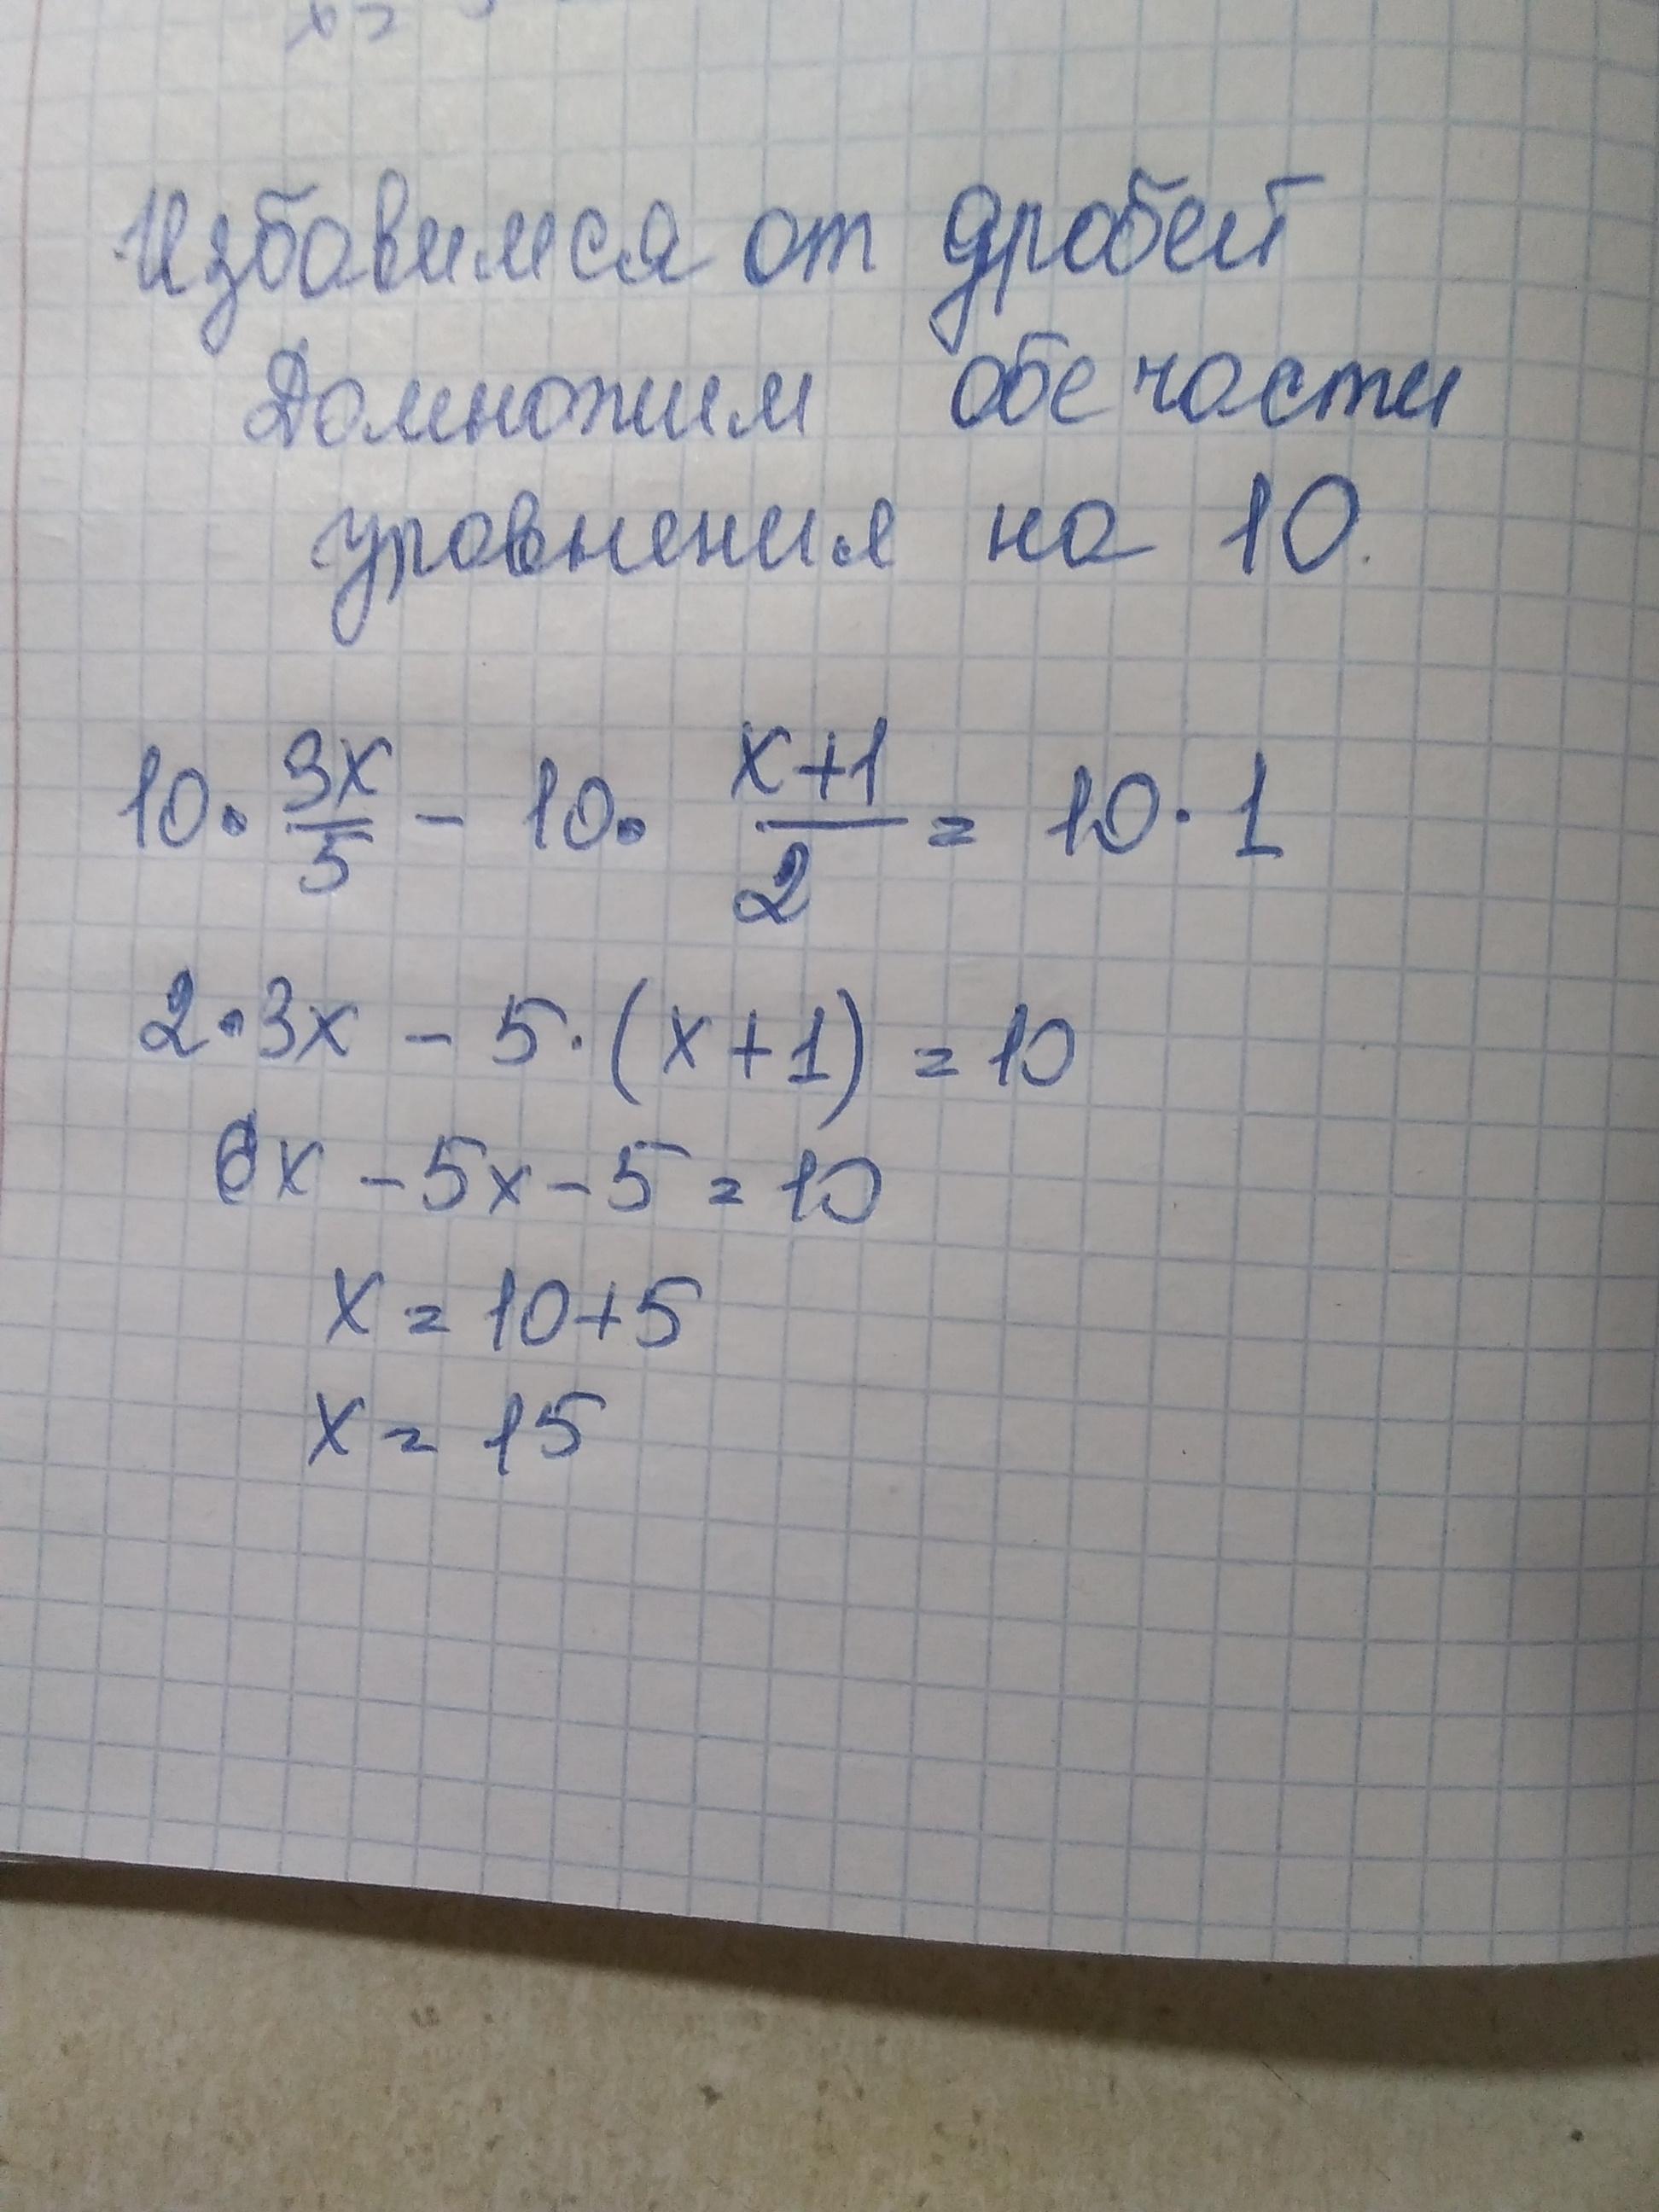 Избавимся от дробей
Домножим обе части
уравнения на 10.
10 · 3x/5 - 10 · x+1/2 = 10 · 1
2 · 3x - 5 · (x+1) = 10
6x - 5x - 5 = 10
x = 10+5
x = 15